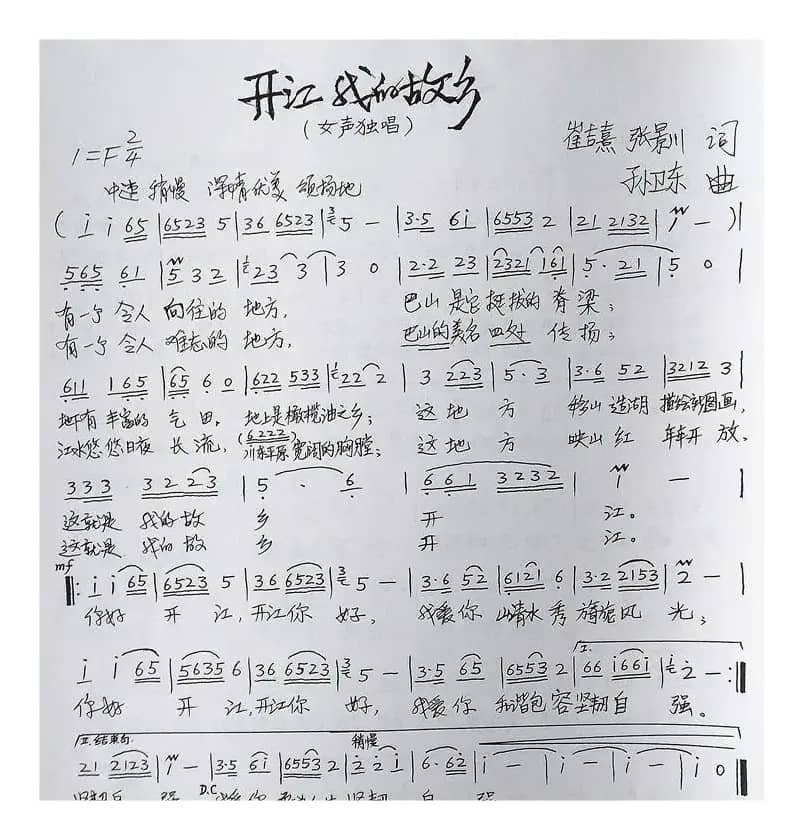 开江 我的故乡
（女声独唱）
1=F 2/4
崔吉熹 张景川 词
孙卫东 曲
中速 稍慢 深情优美 颂扬地
( i i 65 | 6523 5 | 36 6523 | 5 － | 3·5 6i | 6553 2 | 21 2132 | 1 － ) |
565 61 | 5 3 2 | 23 3 | 3 0 | 2·2 23 | 2321 161 | 5·21 | 5 0 |
有一个 令人 向往的 地方， 巴山 是它 挺拔的 脊梁；
有一个 令人 难忘的 地方， 巴山的美名 四处 传扬；
611 165 | 65 6 0 | 622 533 | 22 2 | 3 223 | 5·3 | 3·6 52 | 3212 3 |
地下有 丰富的 气 田， 地上是橄榄油之乡； 这 地 方 移山 造湖 描绘新图画，
(6222)
江水悠 悠日夜 长 流， 川东平原 宽阔的胸膛； 这 地 方 映山 红 年年开 放。
333 3223 | 5· 6 | 661 3232 | 1 － |
这就是 我的故 乡 开 江。
这就是 我的故 乡 开 江。
mf
‖: i i 65 | 6523 5 | 36 6523 | 5 － | 3·6 52 | 6121 6 | 3·2 2153 | 2 － |
你好 开 江，开江你 好， 我爱你 山清水 秀 旖旎风 光；
I.
i i 65 | 5635 6 | 36 6523 | 5 － | 3·5 65 | 6553 2 | 66 i66i | 2 － :‖
你好 开 江，开江你 好， 我爱你 和谐包 容坚韧自 强。
II. 结束句 稍慢
21 2123 | 1 － | 3·5 6i | 6553 2 | 2 2 i | 6·62 | i － | i － | i － | i 0 ‖
D.C
坚韧自 强